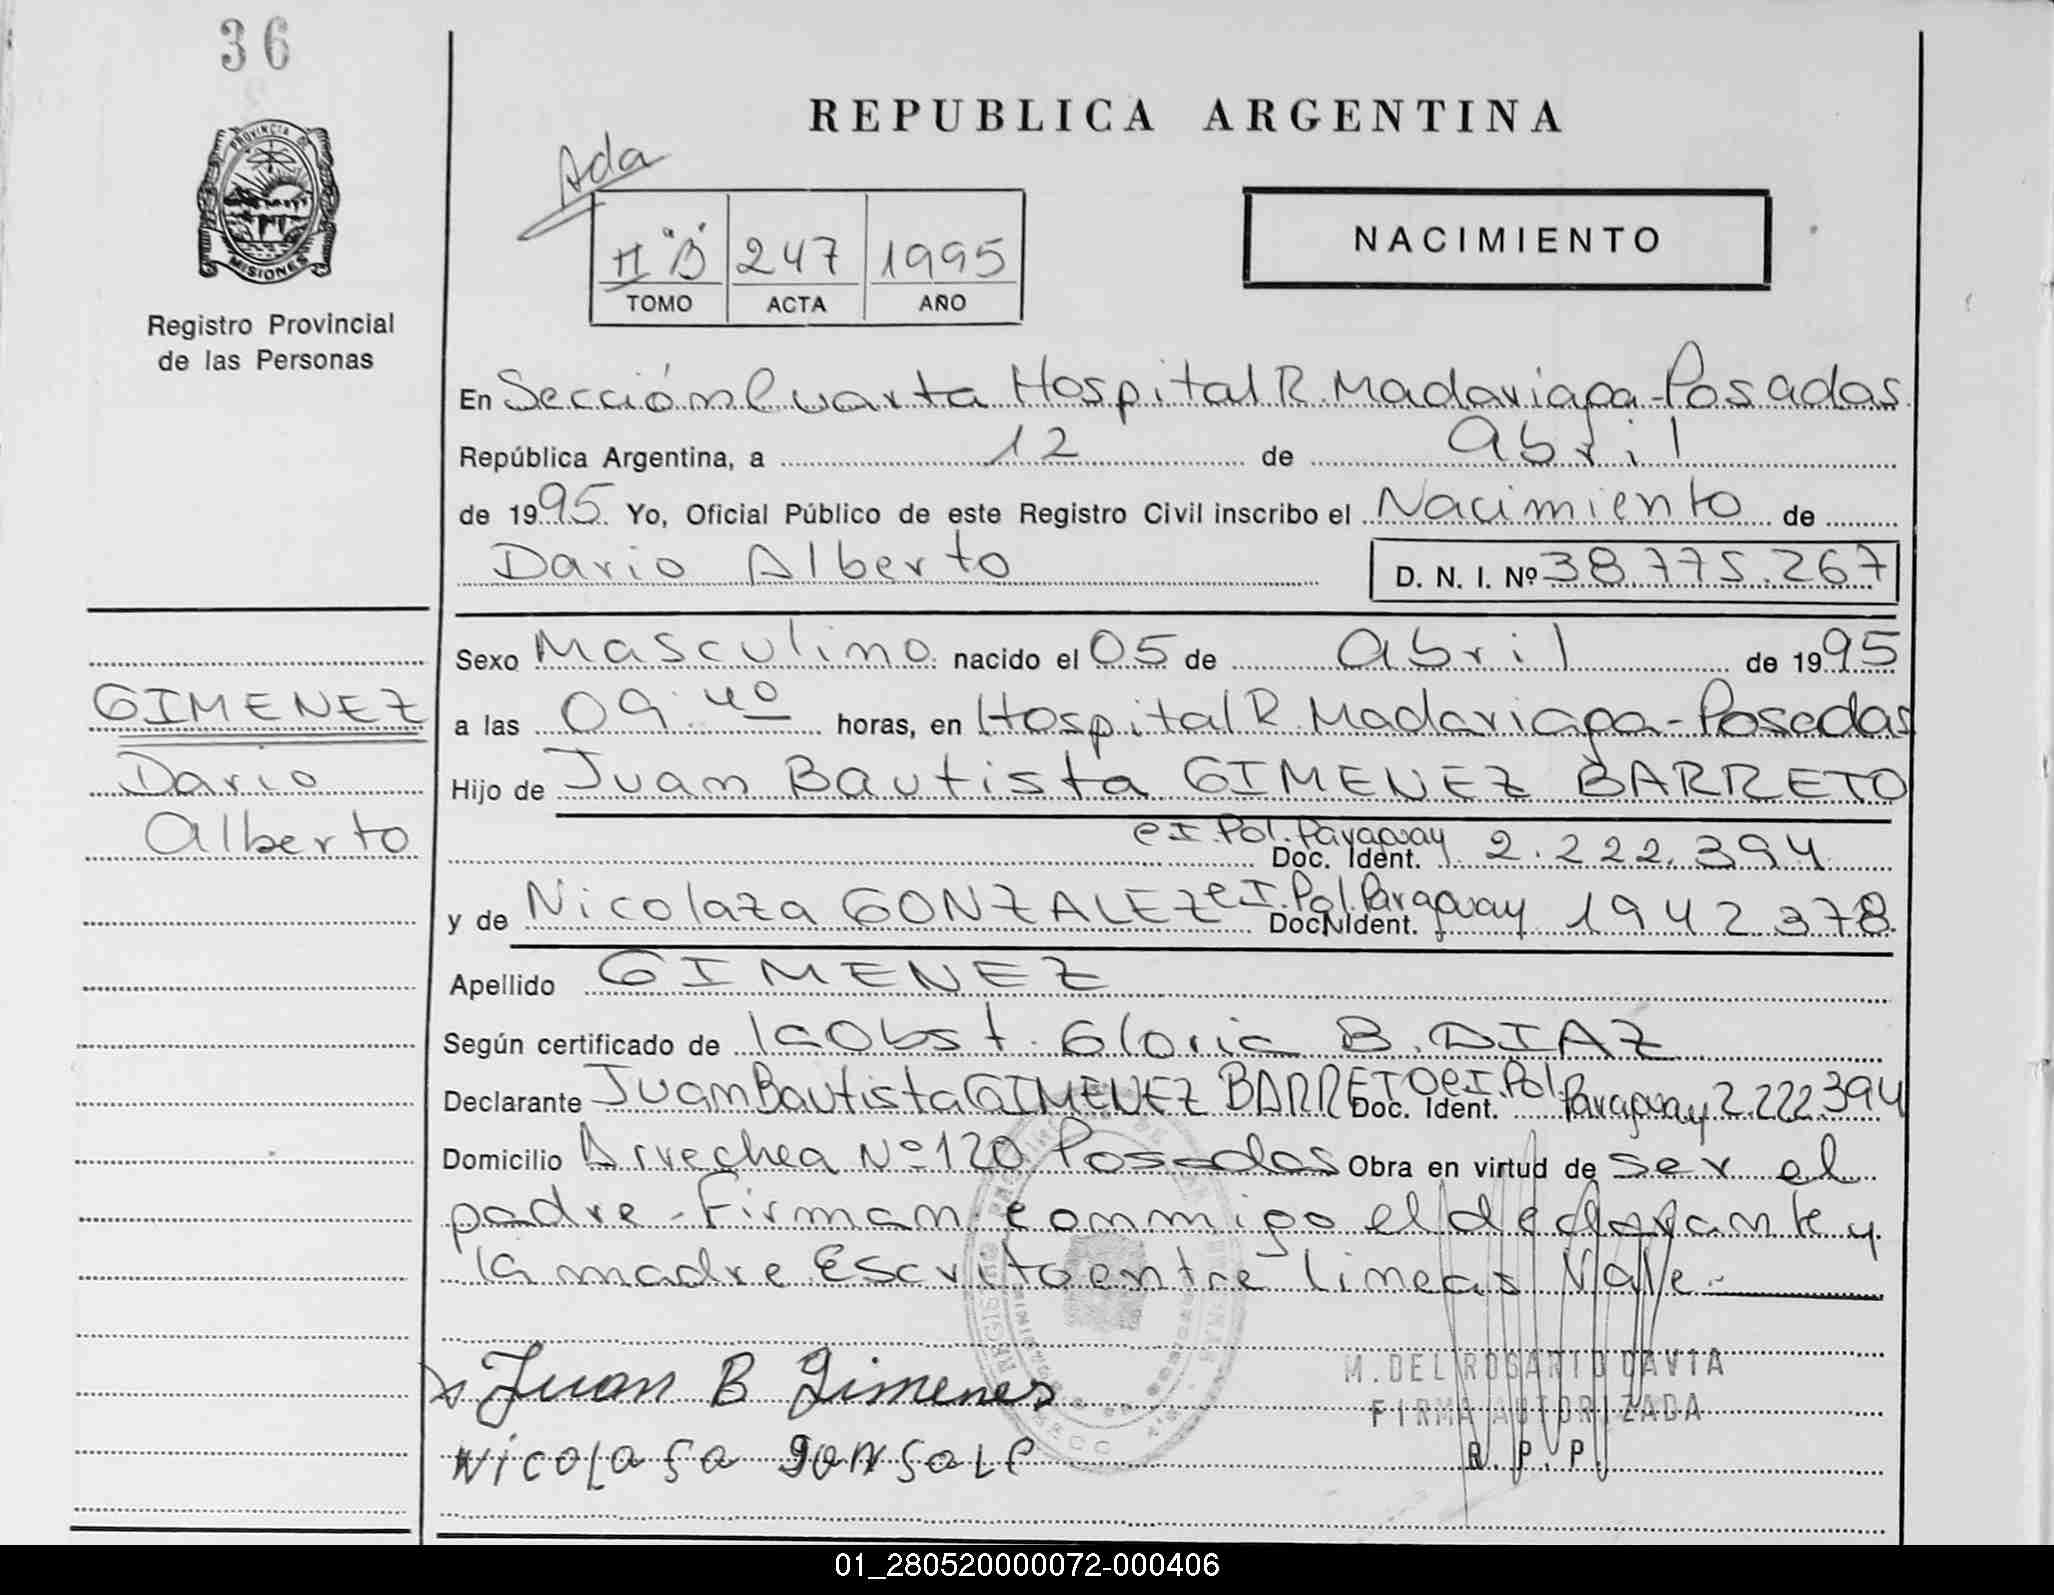 36
REPUBLICA ARGENTINA
Ada
PROVINCIA DE
MISIONES
Registro Provincial
de las Personas
II "B" 247 1995
TOMO ACTA AÑO
NACIMIENTO
En Sección Cuarta Hospital R. Madariaga - Posadas
República Argentina, a 12 de abril
de 1995 Yo, Oficial Público de este Registro Civil inscribo el Nacimiento de
Dario Alberto D. N. I. Nº 38.775.267
Sexo Masculino nacido el 05 de abril de 1995
GIMENEZ
Dario
Alberto
a las 09:40 horas, en Hospital R. Madariaga - Posadas
Hijo de Juan Bautista GIMENEZ BARRETO
eI. Pol. Paraguay
Doc. Ident. 2.222.394
y de Nicolaza GONZALEZ eI. Pol. Paraguay
Doc. Ident. 1942.378
Apellido GIMENEZ
Según certificado de la Obst. Gloria B. DIAZ
Declarante Juan Bautista GIMENEZ BARRETO eI Pol Doc. Ident. Paraguay 2.222394
Domicilio Arrechea Nº 120 Posadas Obra en virtud de ser el
padre - Firman conmigo el declarante y
la madre Escrito entre lineas Vale -
Juan B Gimenes
Nicolasa gonsale
M. DEL ROSARIO DAVIA
FIRMA AUTORIZADA
R. P. P.
01_280520000072-000406